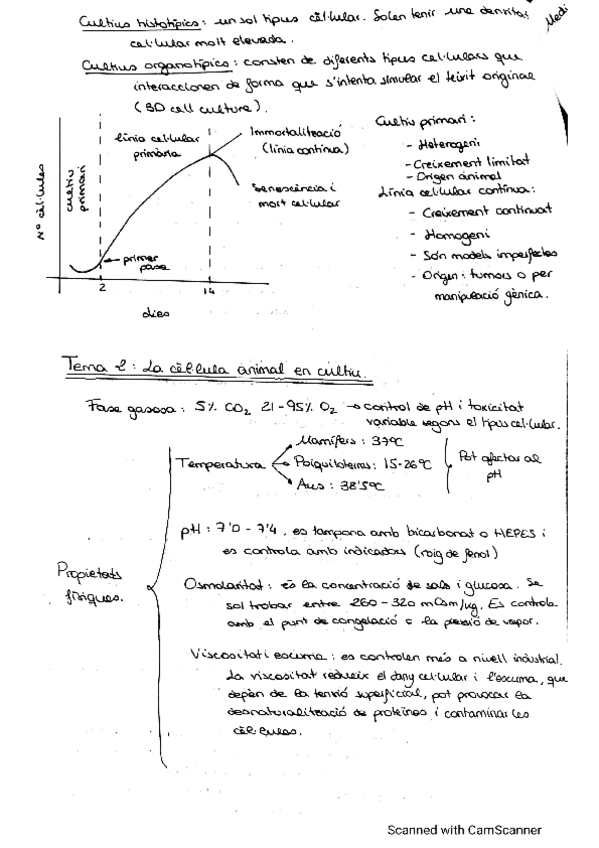 Cultius histotípics: un sol tipus cèl·lular. Solen tenir una densitat
cel·lular molt elevada.
Medi
Cultius organotípics: consten de diferents tipus cel·lulars que
interaccionen de forma que s'intenta simular el teixit original
(3D cell culture).
Nº cèl·lules
cultiu
primari
línia cel·lular
primària
Immortalització
(línia contínua)
Senescència i
mort cel·lular
primer
pase
2
14
dies
Cultiu primari:
- Heterogeni
- Creixement limitat
- Origen animal
Línia cel·lular contínua:
- Creixement continuat
- Homogeni
- Són models imperfectes
- Origen: tumors o per
manipulació gènica.
Tema 2: La cèl·lula animal en cultiu.
Fase gasosa: 5% CO2 21-95% O2 → control de pH i toxicitat
variable segons el tipus cel·lular.
Propietats
físiques.
Temperatura
Mamífers: 37ºC
Poiquiloterms: 15-26ºC
Aus: 38'5ºC
Pot afectar al
pH
pH: 7'0 - 7'4. es tampona amb bicarbonat o HEPES i
es controla amb indicadors (roig de fenol)
Osmolaritat: és la concentració de sals i glucosa. Se
sol trobar entre 260-320 mOsm/kg. Es controla
amb el punt de congelació o la pressió de vapor.
Viscositat i escuma: es controlen més a nivell industrial.
La viscositat redueix el dany cel·lular i l'escuma, que
depèn de la tensió superficial, pot provocar la
desnaturalització de proteïnes i contaminar les
cèl·lules.
Scanned with CamScanner